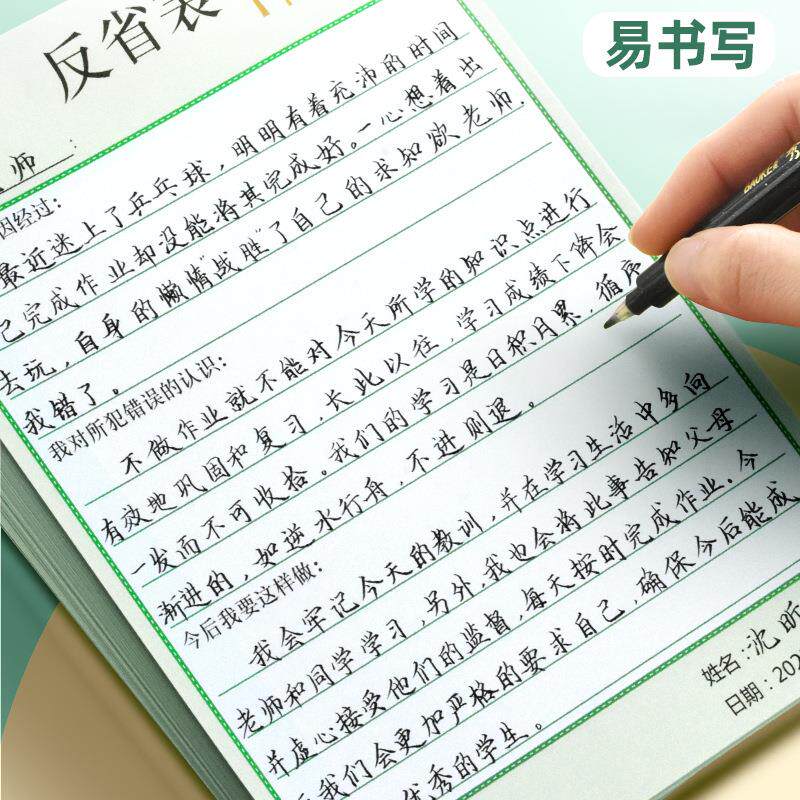 易书写
反省表
师：
因经过：
最近迷上了乒乓球，明明有着充沛的时间
完成作业却没能将其完成好。一心想着出
去玩，自身的懒惰"战胜"了自己的求知欲。老师.
我错了。
我对所犯错误的认识：
不做作业就不能对今天所学的知识点进行
有效地巩固和复习，长此以往，学习成绩下降会
一发而不可收拾。我们的学习是日积月累，循序
渐进的，如逆水行舟，不进则退。
今后我要这样做：
我会牢记今天的教训，并在学习生活中多向
老师和同学学习，另外，我也会将此事告知父母
并虚心接受他们的监督，每天按时完成作业。今
后我们会更加严格的要求自己，确保今后能成
优秀的学生。
姓名：沈昕
日期：202